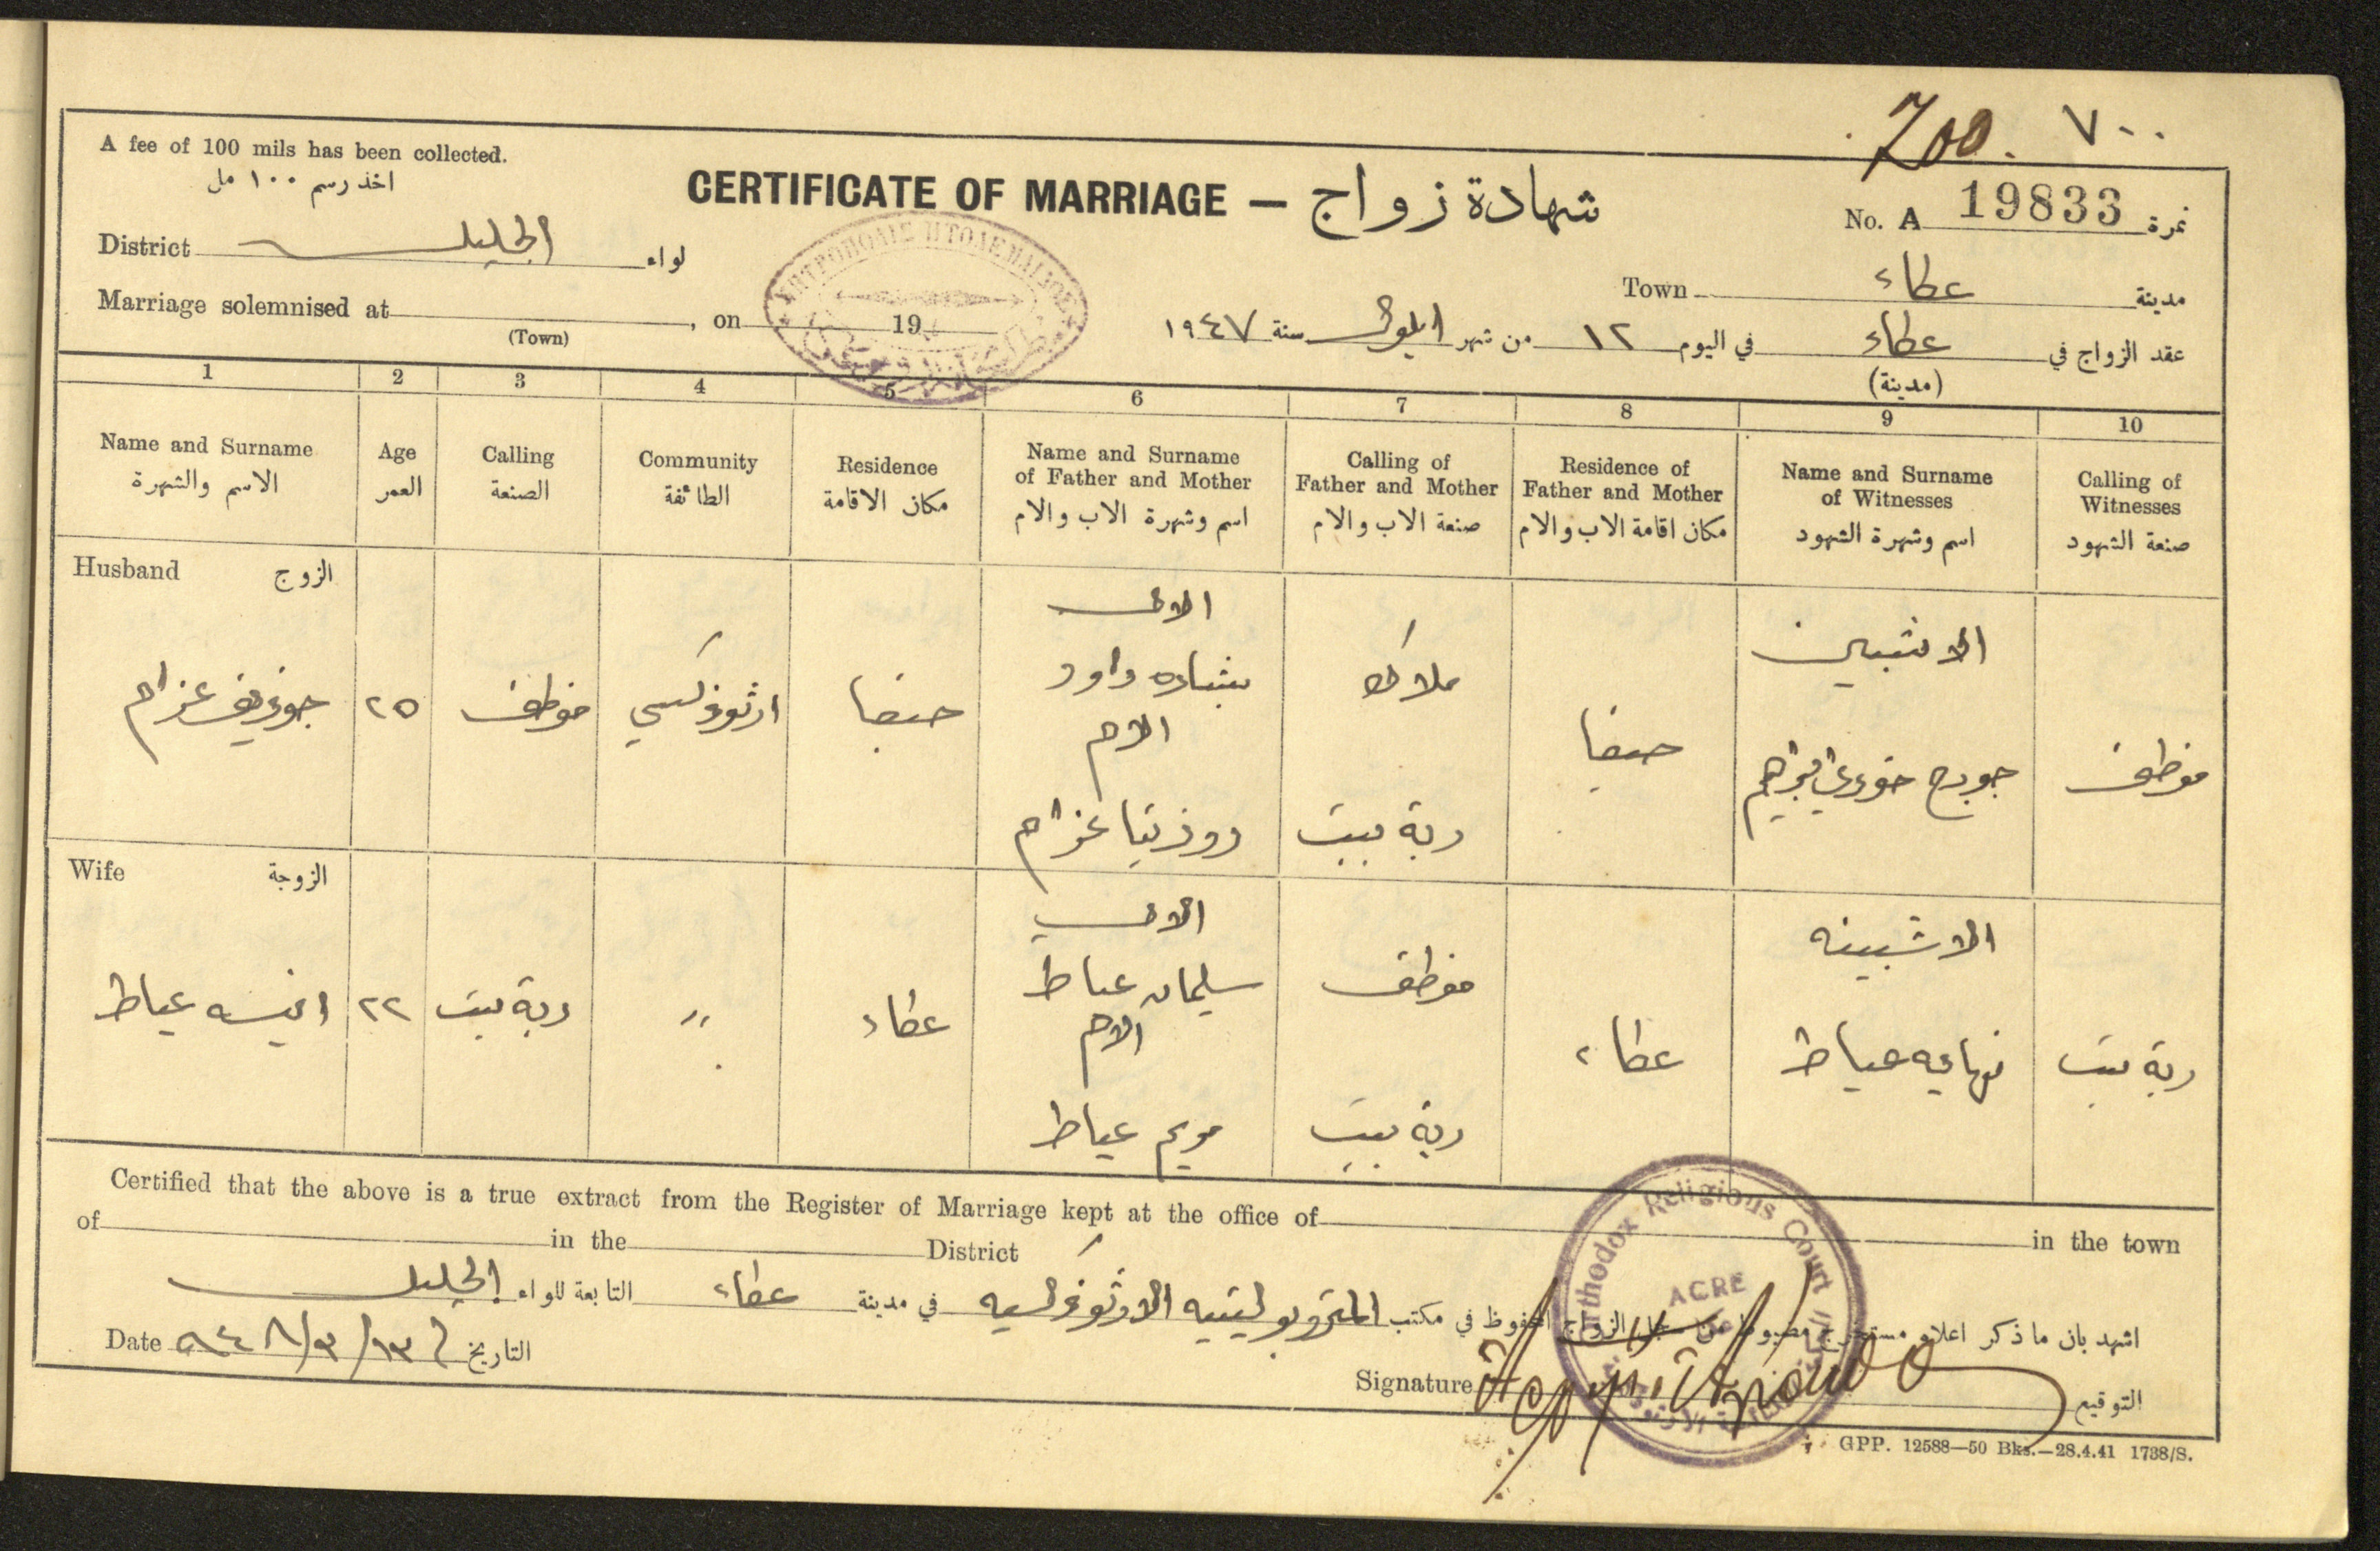 700. ٧٠٠
A fee of 100 mils has been collected.
اخذ رسم ١٠٠ مل
CERTIFICATE OF MARRIAGE — شهادة زواج
No. A 19833 نمرة
District الجليل لواء
Town عكاء مدينة
Marriage solemnised at , on 19
(Town)
عقد الزواج في عكاء في اليوم ١٢ من شهر ايلول سنة ١٩٤٧
(مدينة)
1 2 3 4 5 6 7 8 9 10
Name and Surname
الاسم والشهرة
Age
العمر
Calling
الصنعة
Community
الطائفة
Residence
مكان الاقامة
Name and Surname
of Father and Mother
اسم وشهرة الاب والام
Calling of
Father and Mother
صنعة الاب والام
Residence of
Father and Mother
مكان اقامة الاب والام
Name and Surname
of Witnesses
اسم وشهرة الشهود
Calling of
Witnesses
صنعة الشهود
Husband الزوج
عزام
٢٥
موظف
ارثوذكسي
حيفا
الاب
بشاره داود
الام
عزام
ملاك
ربة بيت
حيفا
الاشبين
جورج خوري ابراهيم
موظف
Wife الزوجة
انيسه عياط
٢٢
ربة بيت
"
عكاء
الاب
سليمان عياط
الام
مريم عياط
موظف
ربة بيت
عكاء
الاشبينه
عياط
ربة بيت
Certified that the above is a true extract from the Register of Marriage kept at the office of in the town
of in the District
اشهد بان ما ذكر اعلاه مستخرج مضبوط من سجل الزواج المحفوظ في مكتب المتروبوليتيه الارثوذكسيه في مدينة عكاء التابعة للواء الجليل
Date التاريخ
Signature التوقيع
Orthodox Religious Court
ACRE
GPP. 12588—50 Bks.—28.4.41 1738/S.